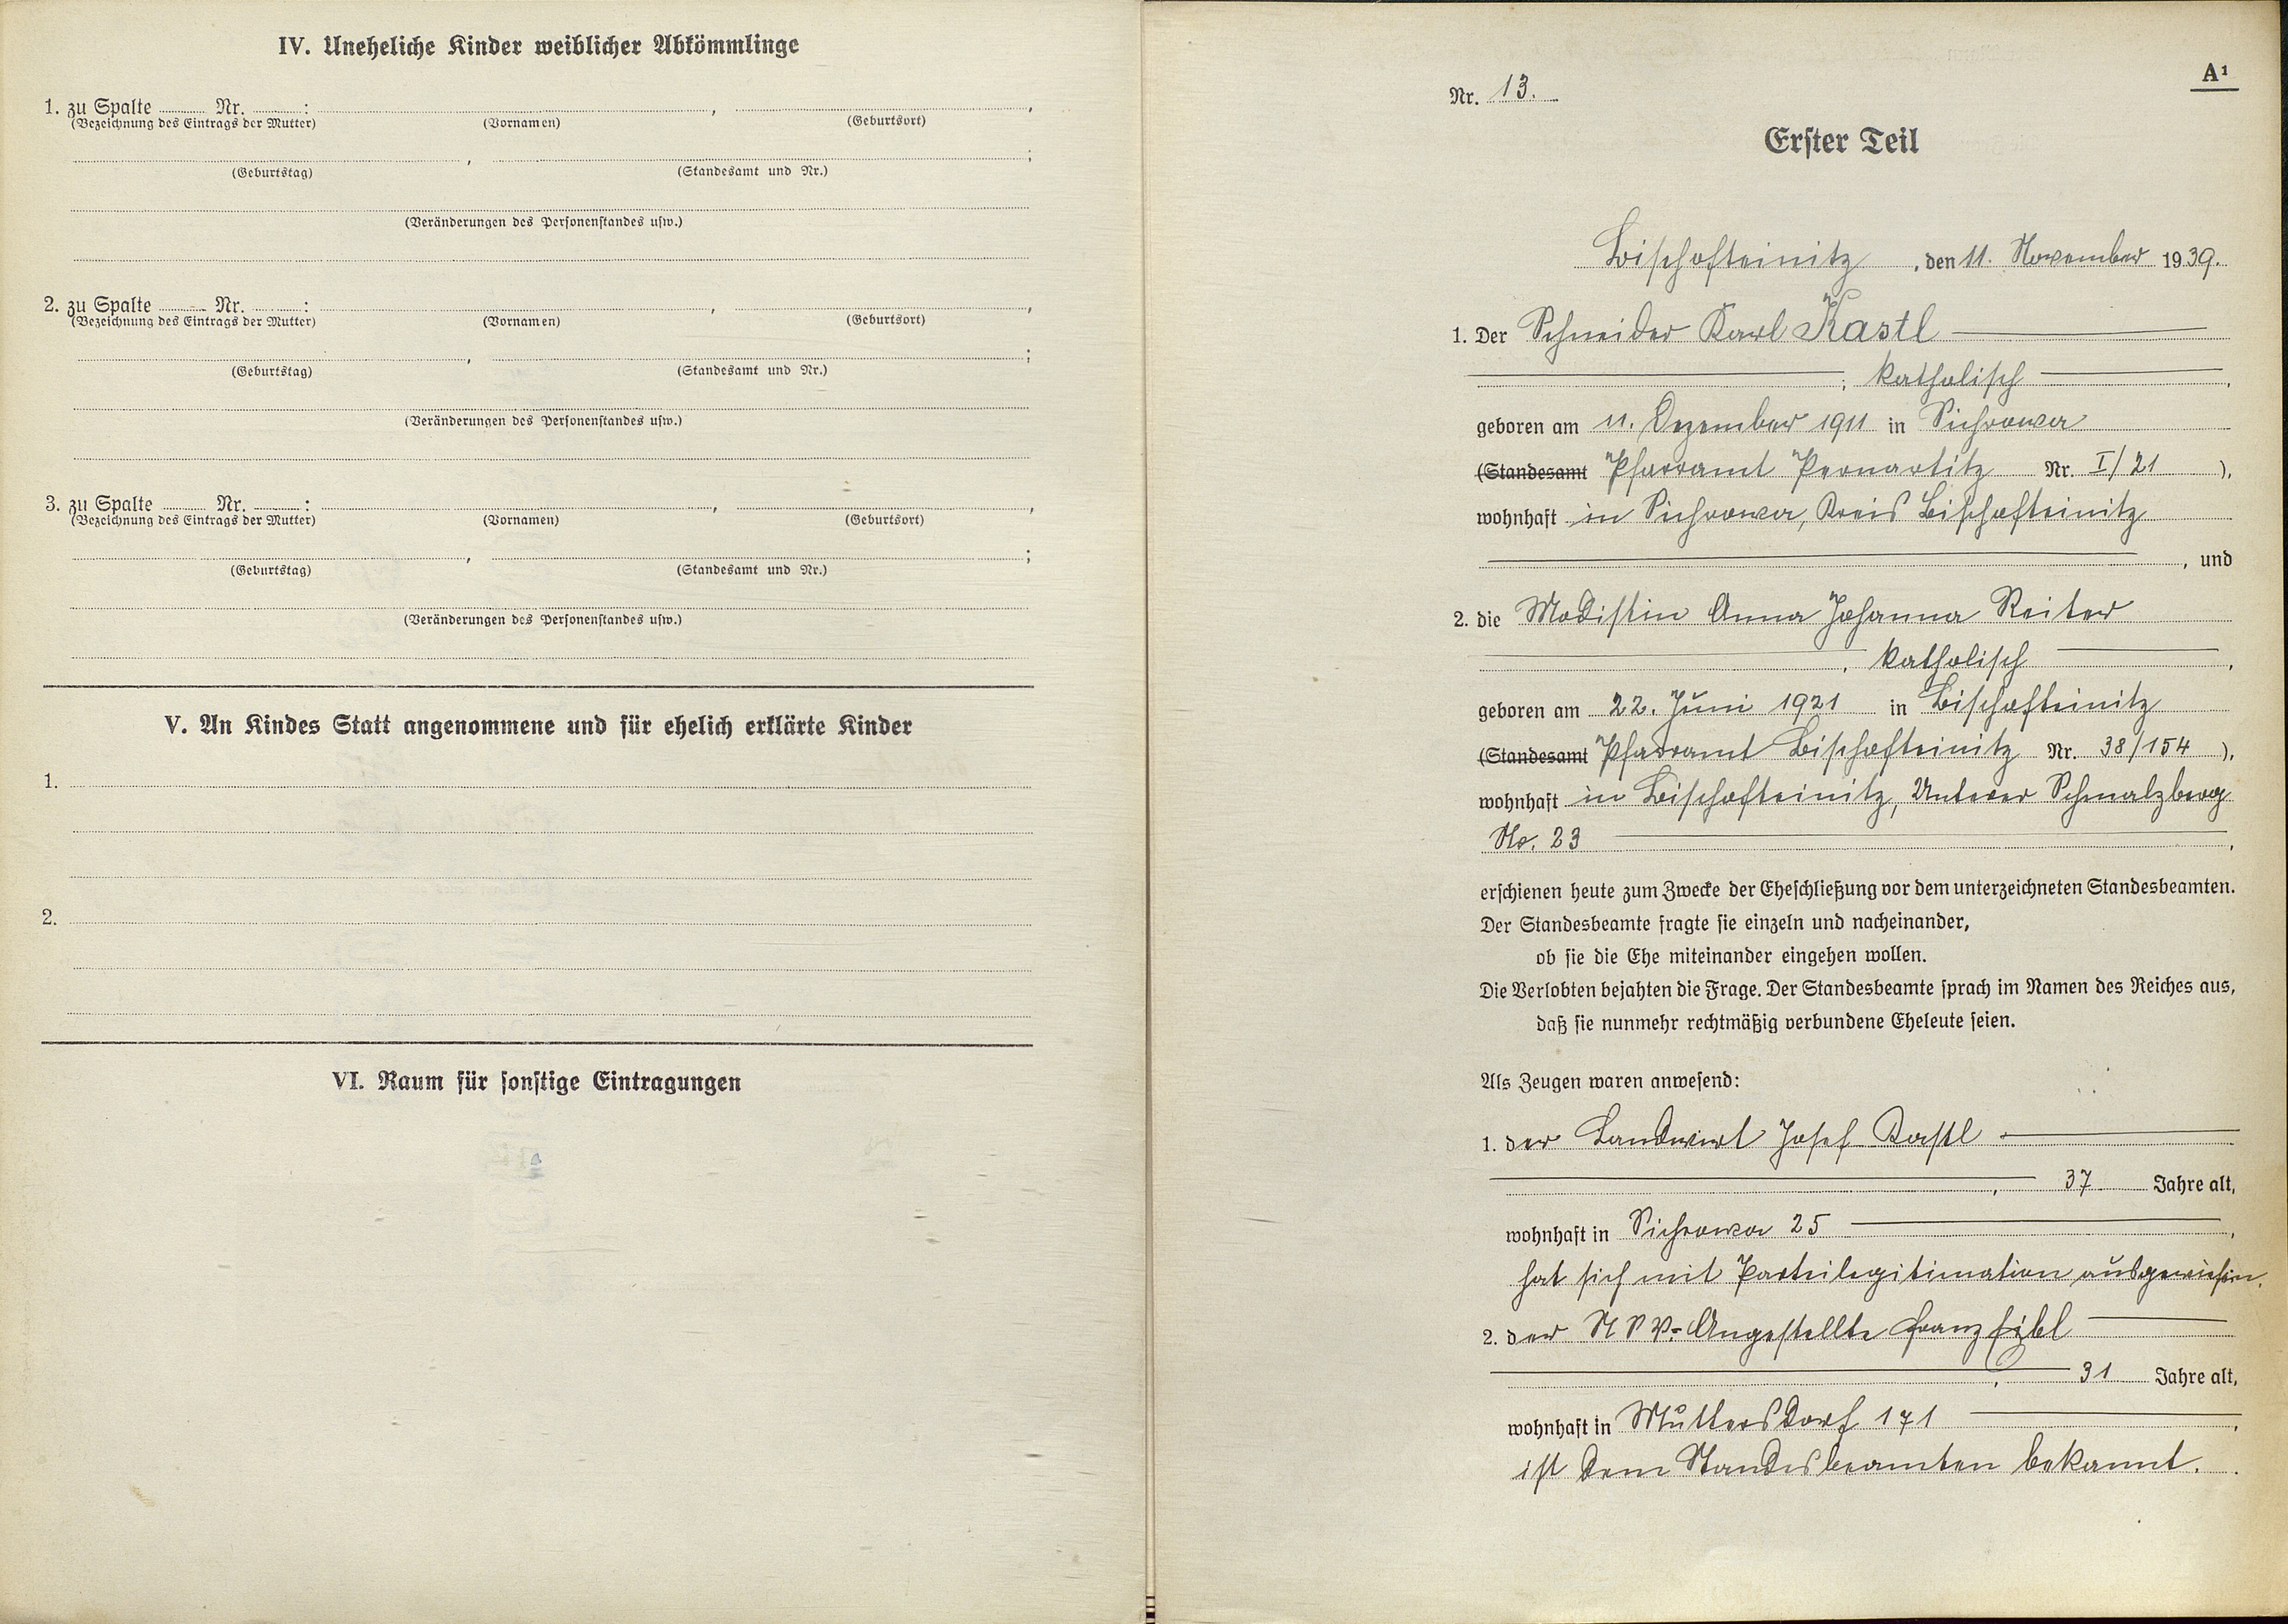 IV. Uneheliche Kinder weiblicher Abkömmlinge
1. zu Spalte ........ Nr. ........ : ........ , ........ ,
(Bezeichnung des Eintrags der Mutter) (Vornamen) (Geburtsort)
........ , ........ ;
(Geburtstag) (Standesamt und Nr.)
(Veränderungen des Personenstandes usw.)
2. zu Spalte ........ Nr. ........ : ........ , ........ ,
(Bezeichnung des Eintrags der Mutter) (Vornamen) (Geburtsort)
........ , ........ ;
(Geburtstag) (Standesamt und Nr.)
(Veränderungen des Personenstandes usw.)
3. zu Spalte ........ Nr. ........ : ........ , ........ ,
(Bezeichnung des Eintrags der Mutter) (Vornamen) (Geburtsort)
........ , ........ ;
(Geburtstag) (Standesamt und Nr.)
(Veränderungen des Personenstandes usw.)
V. An Kindes Statt angenommene und für ehelich erklärte Kinder
1.
2.
VI. Raum für sonstige Eintragungen
A¹
Nr. 13.
Erster Teil
Bischofteinitz, den 11. November 1939.
1. Der Schneider Karl Kastl
; katholisch ,
geboren am 11. Dezember 1911 in Sichrowa
(Standesamt Pfarramt Pernartitz Nr. I/21 ),
wohnhaft in Sichrowa, Kreis Bischofteinitz
, und
2. die Modistin Anna Johanna Reiter
, katholisch ,
geboren am 22. Juni 1921 in Bischofteinitz
(Standesamt Pfarramt Bischofteinitz Nr. 38/154 ),
wohnhaft in Bischofteinitz, Unterer Schmalzberg
No. 23 ,
erschienen heute zum Zwecke der Eheschließung vor dem unterzeichneten Standesbeamten.
Der Standesbeamte fragte sie einzeln und nacheinander,
ob sie die Ehe miteinander eingehen wollen.
Die Verlobten bejahten die Frage. Der Standesbeamte sprach im Namen des Reiches aus,
daß sie nunmehr rechtmäßig verbundene Eheleute seien.
Als Zeugen waren anwesend:
1. der Landwirt Josef Kastl
, 37 Jahre alt,
wohnhaft in Sichrowa 25 ,
hat sich mit Parteilegitimation ausgewiesen.
2. der N S V.= Angestellte Franz
, 31 Jahre alt,
wohnhaft in Muttersdorf 171 ,
ist dem Standesbeamten bekannt.